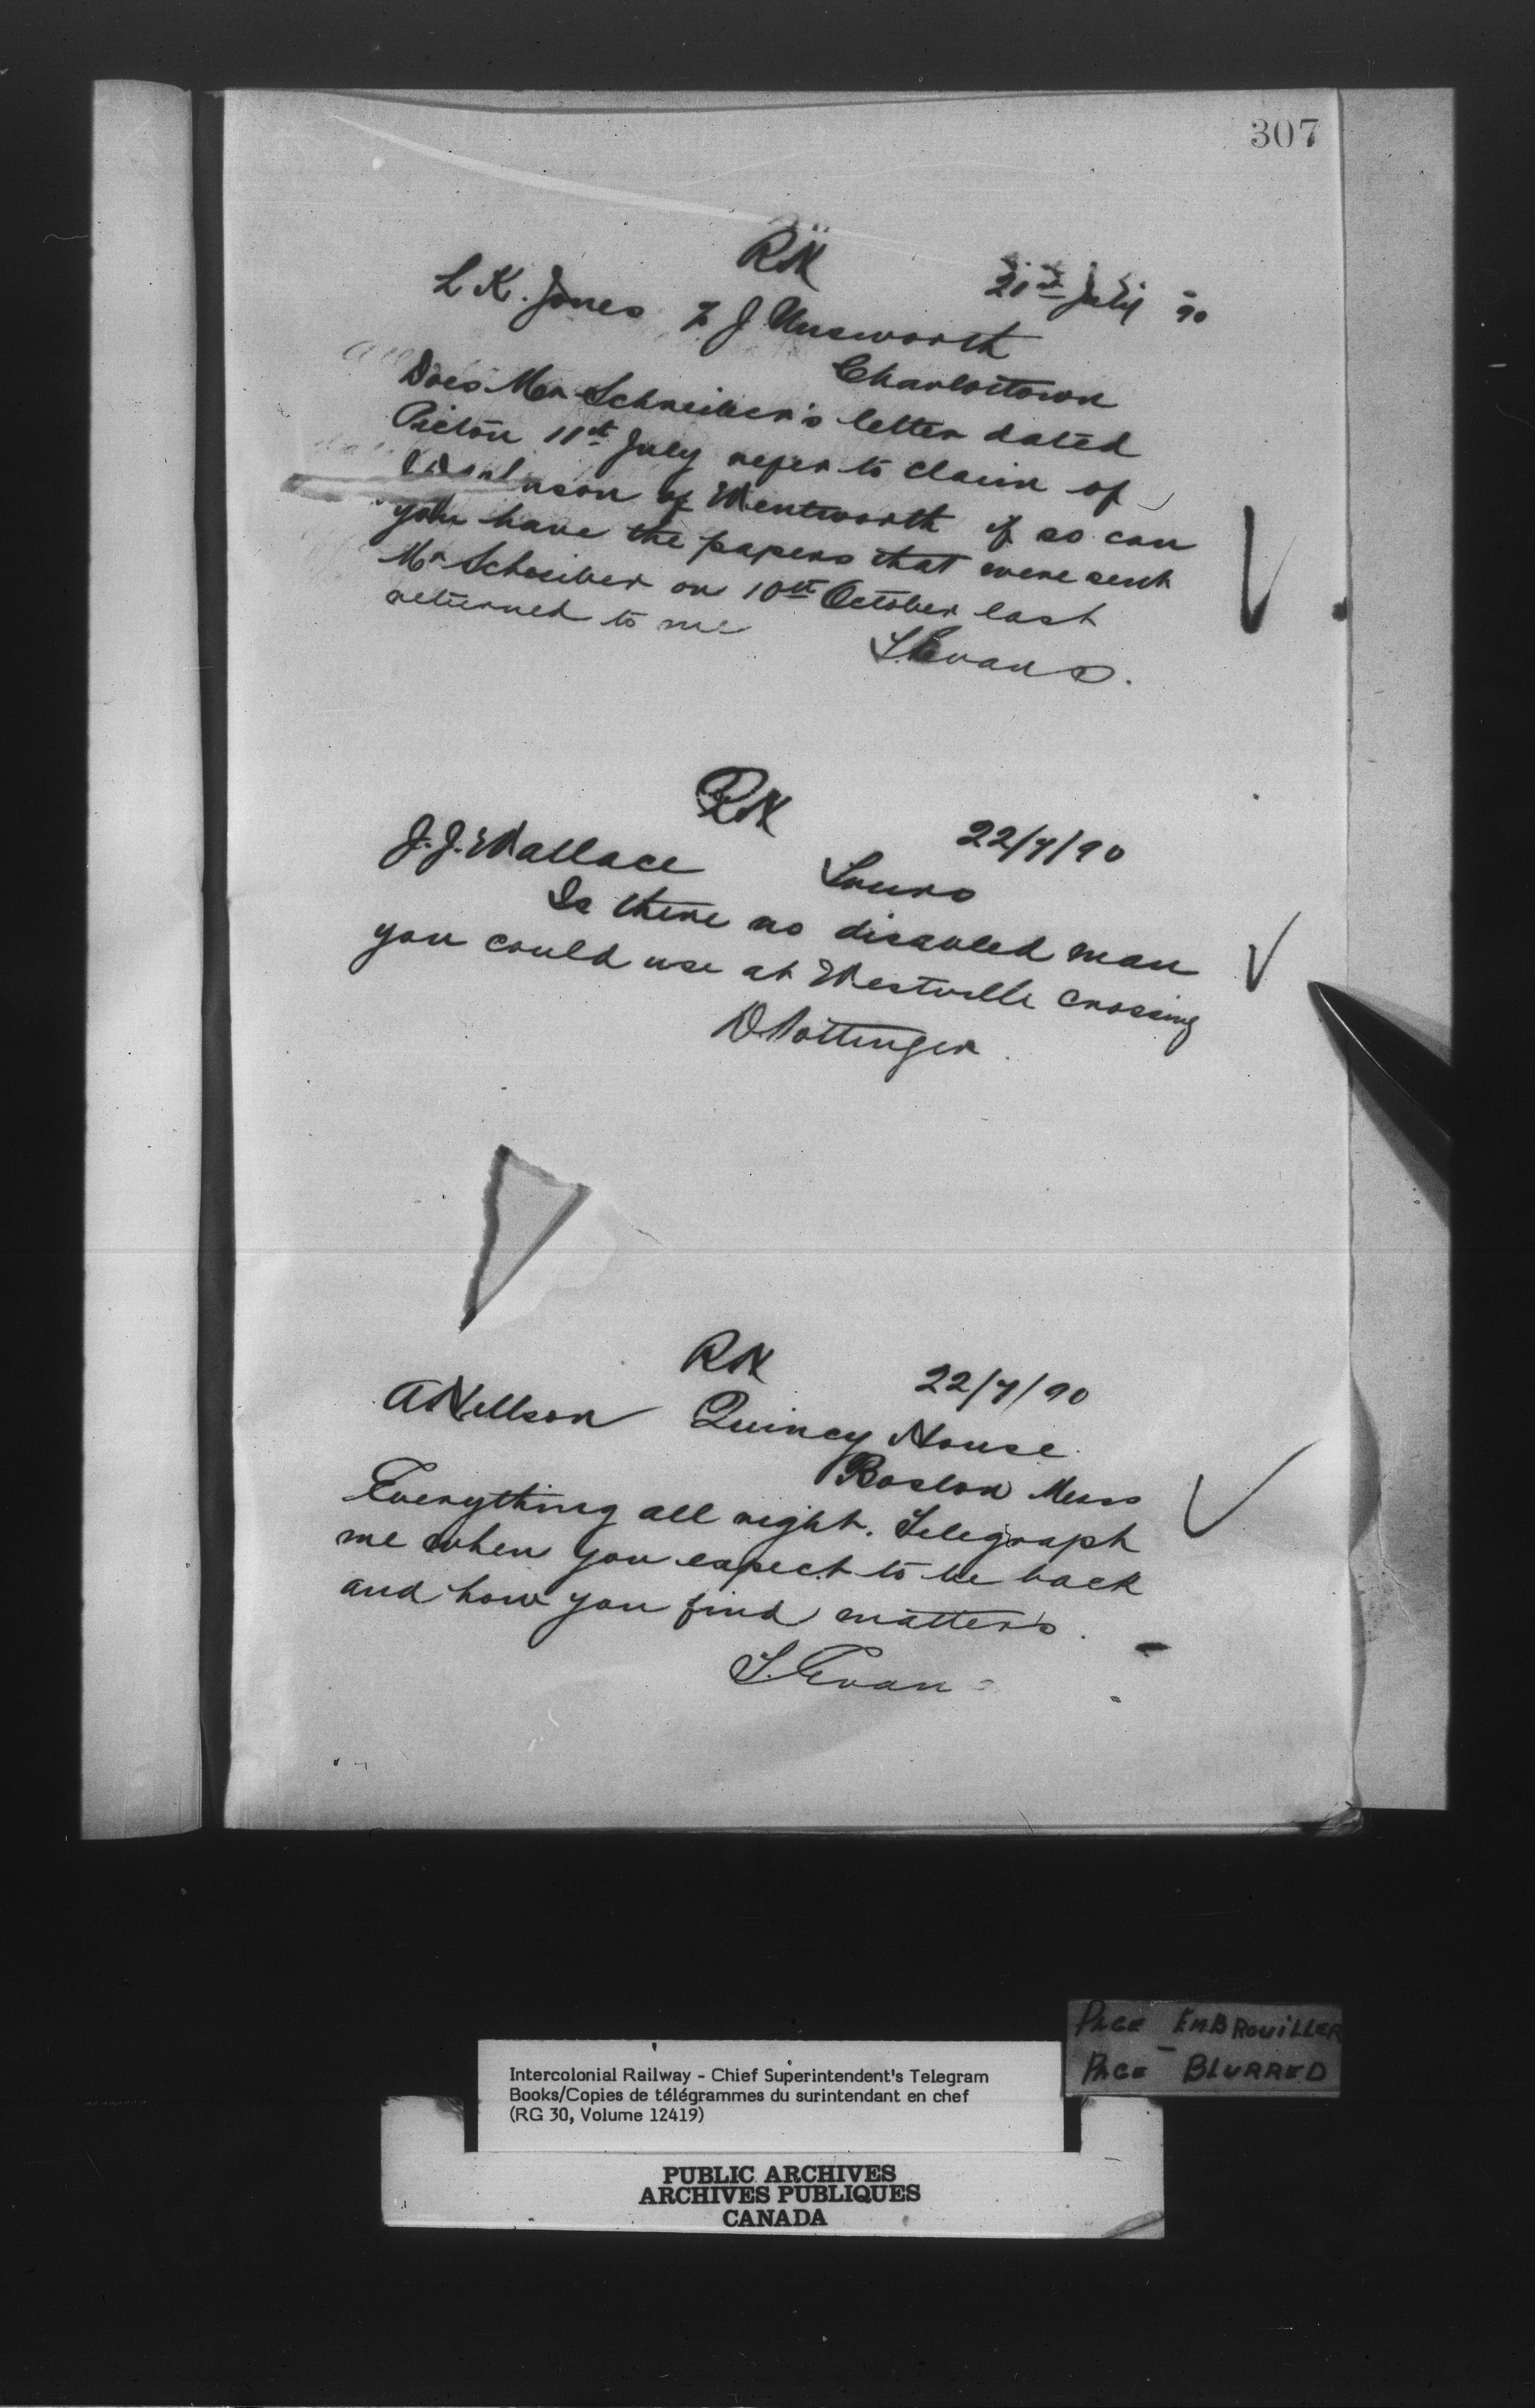 307
RK
21st July 90
L K. Jones % J Unsworth
Charlottown
Does Mr Schreiber's letter dated
Pictou 11th July refer to claim of
of Wentworth if so can
you have the papers that were sent
Mr Schreiber on 10th October last
returned to me
S. Evans.
RK
22/7/90
J. J. Wallace Truro
Is there no disabled man
you could use at Westville crossing
D Pottinger
RK
22/7/90
Quincy House
Boston Mass
Everything all right. Telegraph
me when you expect to be back
and how you find matters.
S. Evans
PAGE EMBROUILLER
PAGE BLURRED
Intercolonial Railway - Chief Superintendent's Telegram
Books/Copies de télégrammes du surintendant en chef
(RG 30, Volume 12419)
PUBLIC ARCHIVES
ARCHIVES PUBLIQUES
CANADA